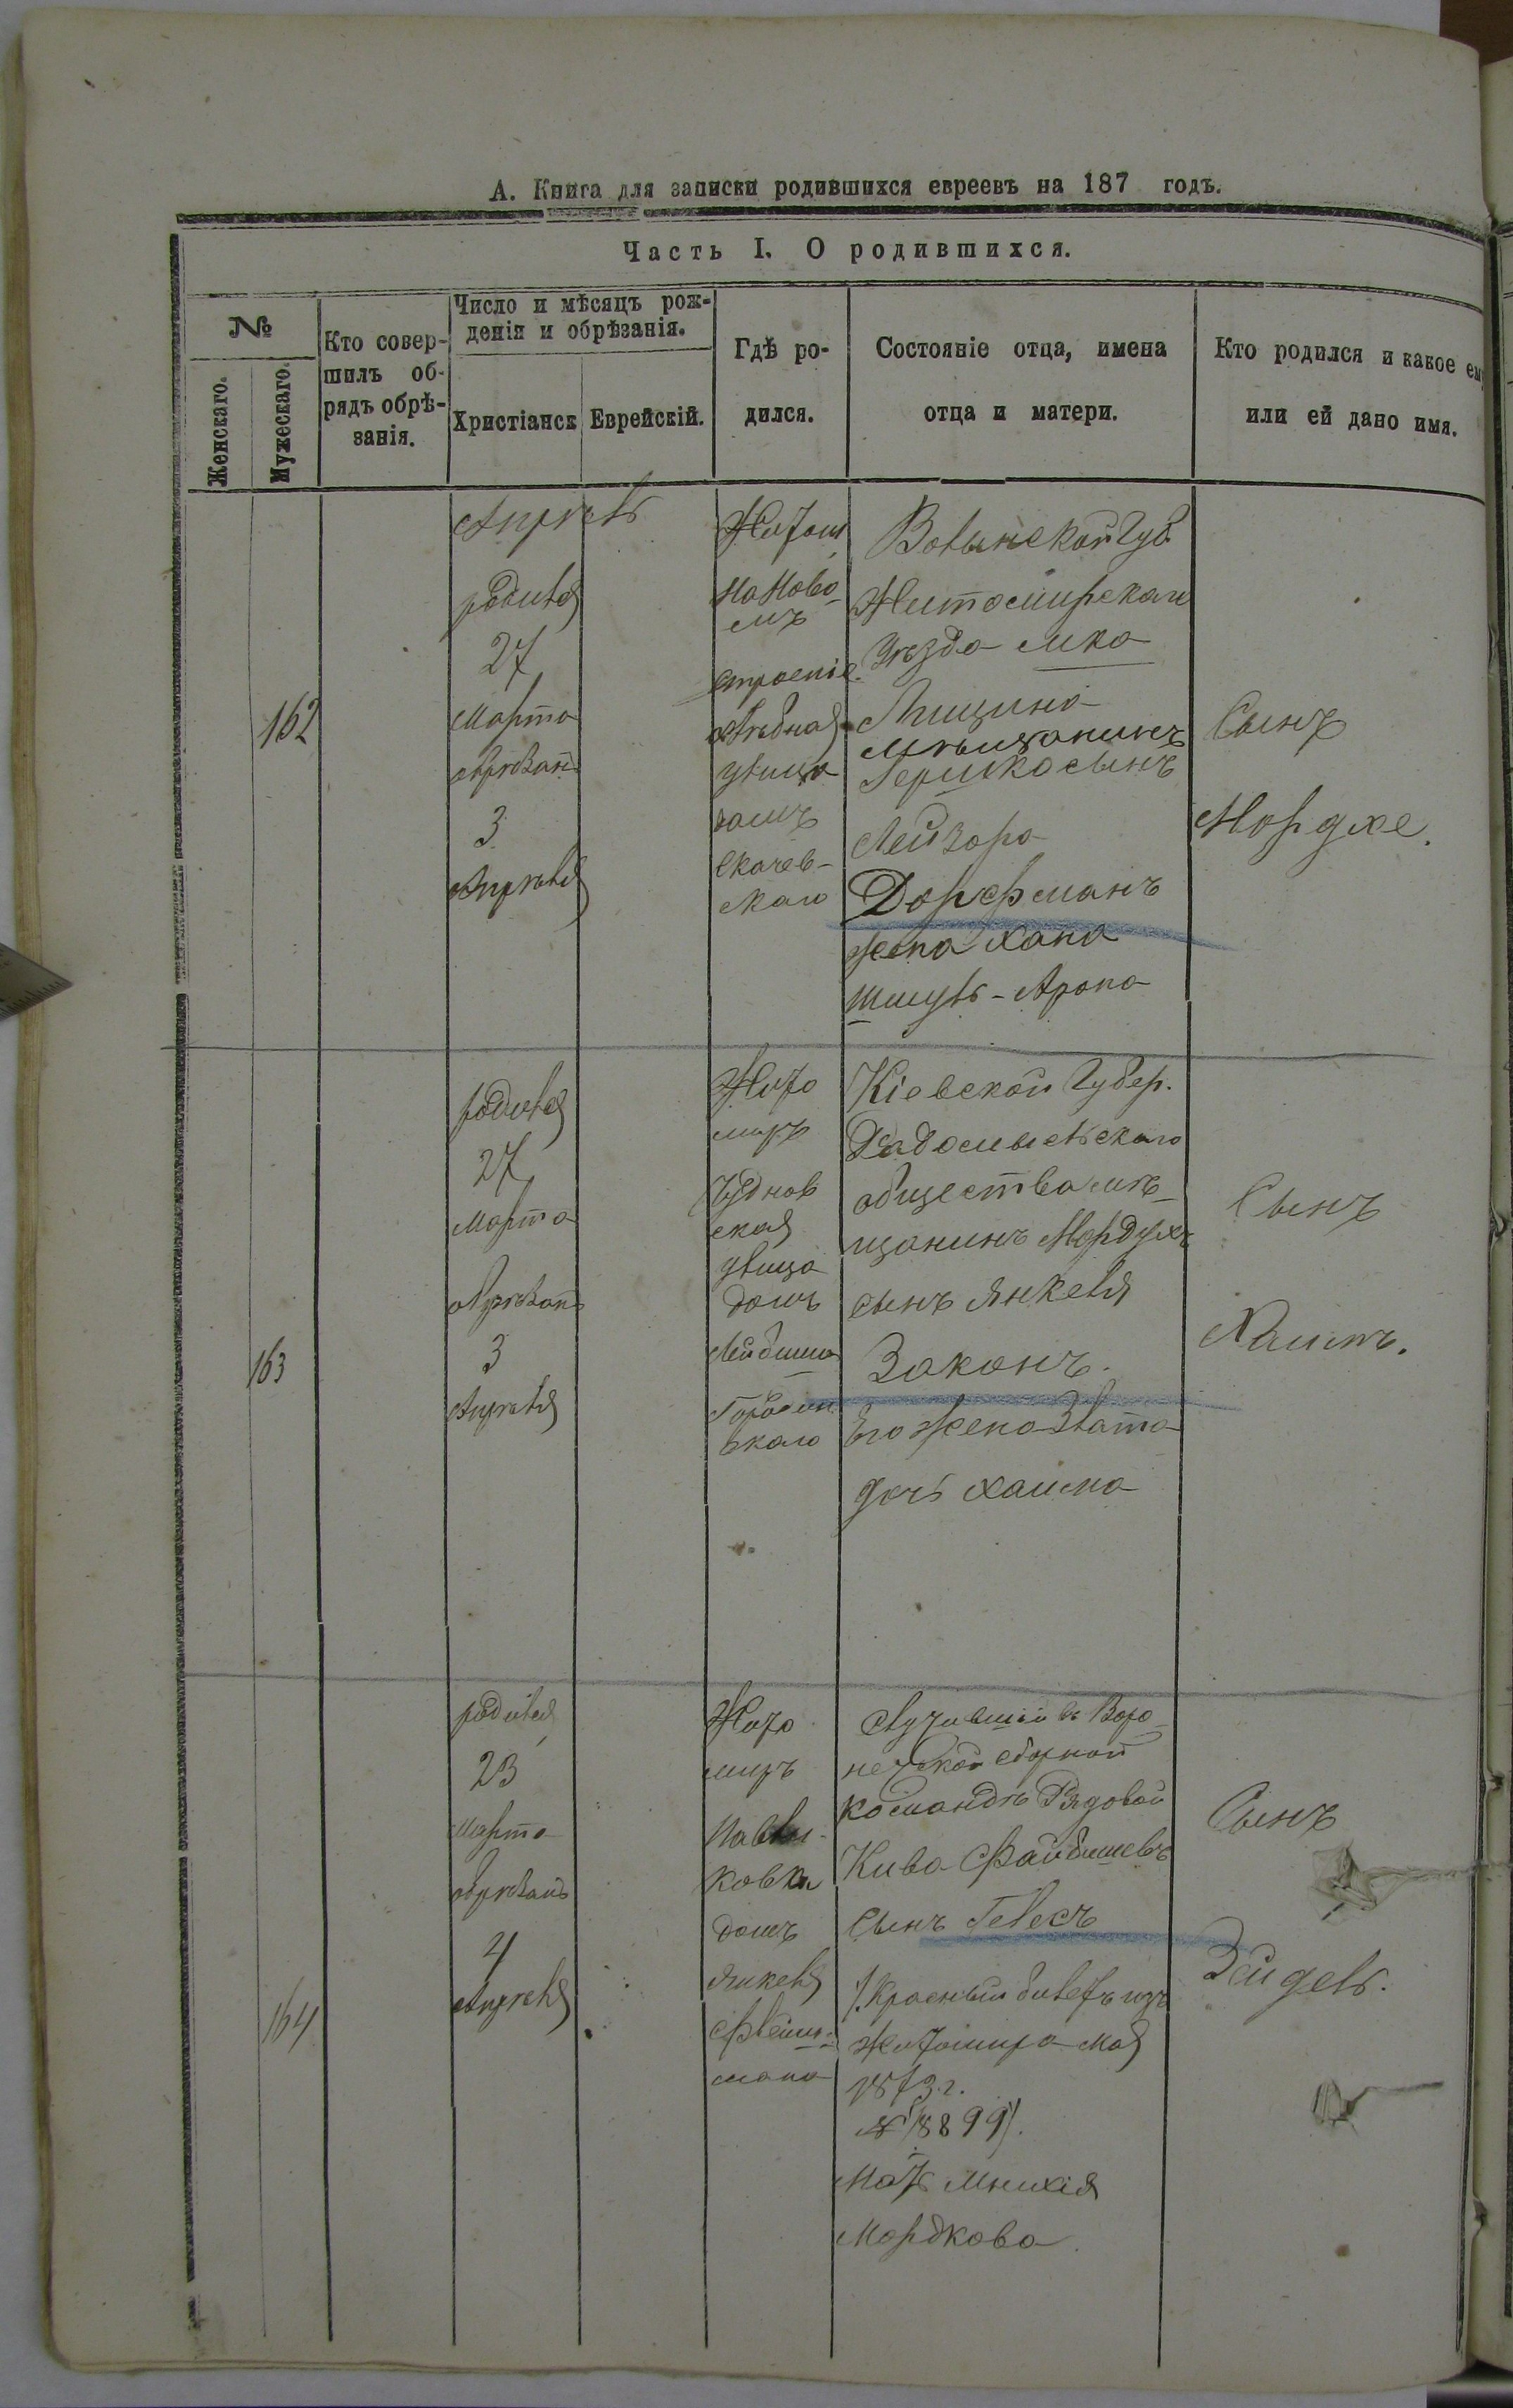 А. Книга для записки родившихся евреевъ на 187 годъ.
Часть I. О родившихся.
№
Женскаго.
Мужескаго.
Кто совер-
шилъ об-
рядъ обрѣ-
занія.
Число и мѣсяцъ рож-
денія и обрѣзанія.
Христіанск
Еврейскій.
Гдѣ ро-
дился.
Состояніе отца, имена
отца и матери.
Кто родился и какое ем
или ей дано имя.
Апрель
162
родился
27
Марта
обрезанъ
3
Апреля
Житом
На Ново-
мъ
строеніе
Хлѣбная
улица
домъ
Скачев-
скаго
Волынской Губ.
Житомирскаго
Уѣзда мка
мѣщанинъ
Гершко сынъ
Лейзора
Дорфманъ
жена Хана
Шмуль-Арона
Сынъ
Мордхе.
163
родился
27
Марта
обрезанъ
3
Апреля
Жито
миръ
Чуднов
ская
улица
домъ
Лейбиша
скаго
Кіевской Губер.
Радомысльскаго
общества мѣ-
щанинъ Мордухъ
сынъ Янкеля
Законъ.
Его жена Злата
дочь Хаима
Сынъ
Хаимъ.
164
родился
23
Марта
обрезанъ
4
Апреля
Жито
миръ
Павли-
ковка
домъ
Янкеля
Флейш-
мана
Служившій въ Воро-
нежской сборной
командѣ Рядовой
Кива Файбишевъ
Сынъ Гелесъ
/Красный билетъ изъ
Житомира Мая
1873 г.
№ 18899/.
Мать Мнихія
Мордкова
Сынъ
Зейдель.